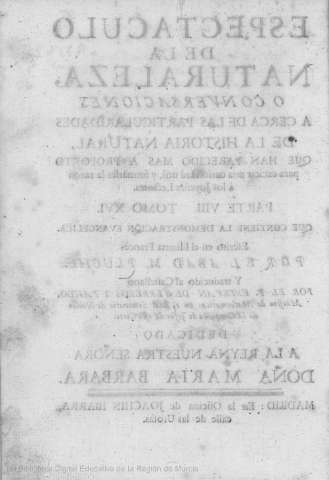 ESPECTACULO
DE LA
NATURALEZA,
O CONVERSACIONES
A CERCA DE LAS PARTICULARIDADES
DE LA HISTORIA NATURAL,
QUE HAN PARECIDO MAS A PROPOSITO
para excitar una curiosidad util, y formarles la razón
à los Jovenes Lectores.
PARTE VIII. TOMO XVI.
QUE CONTIENE LA DEMONSTRACION EVANGELICA.
Escrito en el Idioma Francès
POR EL ABAD M. PLUCHE,
Y traducido al Castellano
POR EL P. ESTEVAN DE TERREROS Y PANDO,
Maestro de Mathematicas en el Real Seminario de Nobles
de la Compañia de Jesus de
DEDICADO
A LA REYNA NUESTRA SEÑORA
DOÑA MARIA BARBARA.
MADRID: En la Oficina de JOACHIN IBARRA,
calle de las Urosas.
Biblioteca Digital Educativa de la Región de Murcia